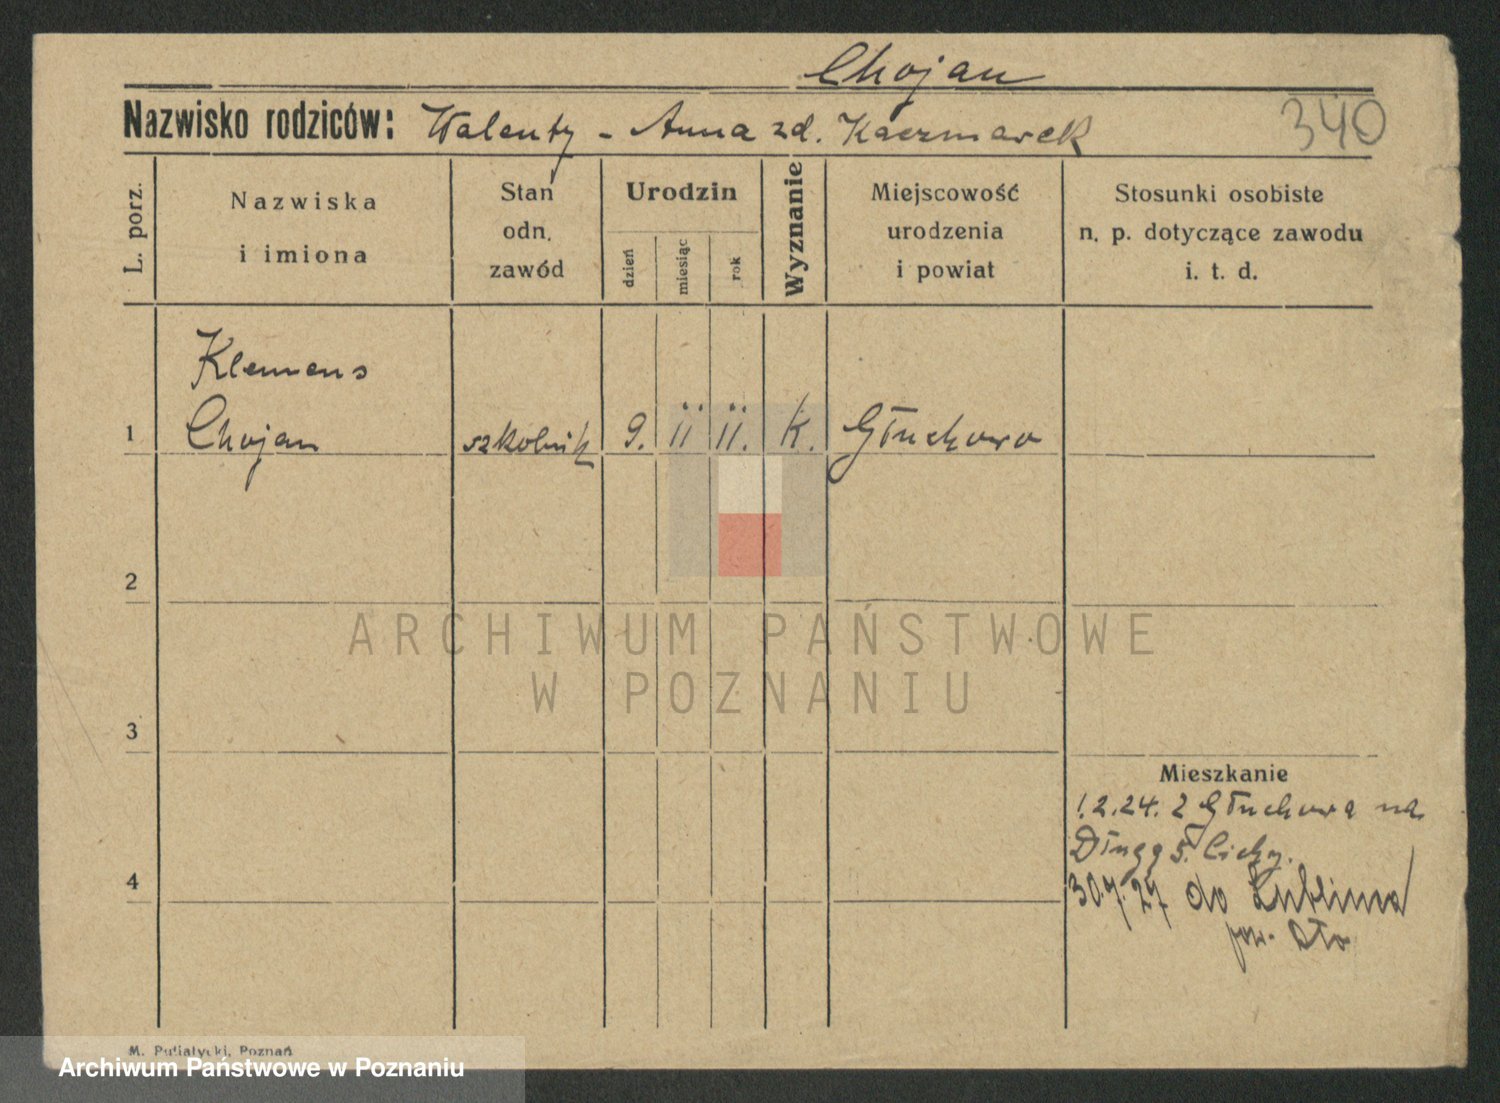 Chojan
Nazwisko rodziców: Walenty - Anna zd. Kaczmarek
340
L. porz.
Nazwiska
i imiona
Stan
odn.
zawód
Urodzin
dzień
miesiąc
rok
Wyznanie
Miejscowość
urodzenia
i powiat
Stosunki osobiste
n. p. dotyczące zawodu
i. t. d.
Klemens
1 Chojan szkolnik 9. ii ii. K. Głuchowo
2
ARCHIWUM PAŃSTWOWE
W POZNANIU
3
Mieszkanie
1.2.24. z Głuchowa na
Długą 5. Cichy.
4
30.4.27 do Lublina
pow.
M. Putiatycki, Poznań
Archiwum Państwowe w Poznaniu